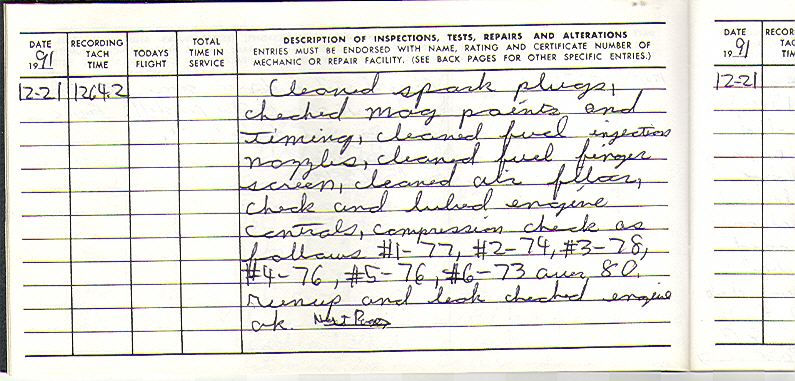 DATE
19 91
RECORDING
TACH
TIME
TODAYS
FLIGHT
TOTAL
TIME IN
SERVICE
DESCRIPTION OF INSPECTIONS, TESTS, REPAIRS AND ALTERATIONS
ENTRIES MUST BE ENDORSED WITH NAME, RATING AND CERTIFICATE NUMBER OF
MECHANIC OR REPAIR FACILITY. (SEE BACK PAGES FOR OTHER SPECIFIC ENTRIES.)
12-21 1264.2 Cleaned spark plugs,
checked mag points and
timing, cleaned fuel injection
nozzles, cleaned fuel finger
screen, cleaned air filter,
check and lubed engine
controls, compression check as
follows #1-77, #2-74, #3-78,
#4-76, #5-76, #6-73 over 80
runup and leak checked engine
ok. Next Page
DATE
19 91
RECOR
TAC
TIM
12-21